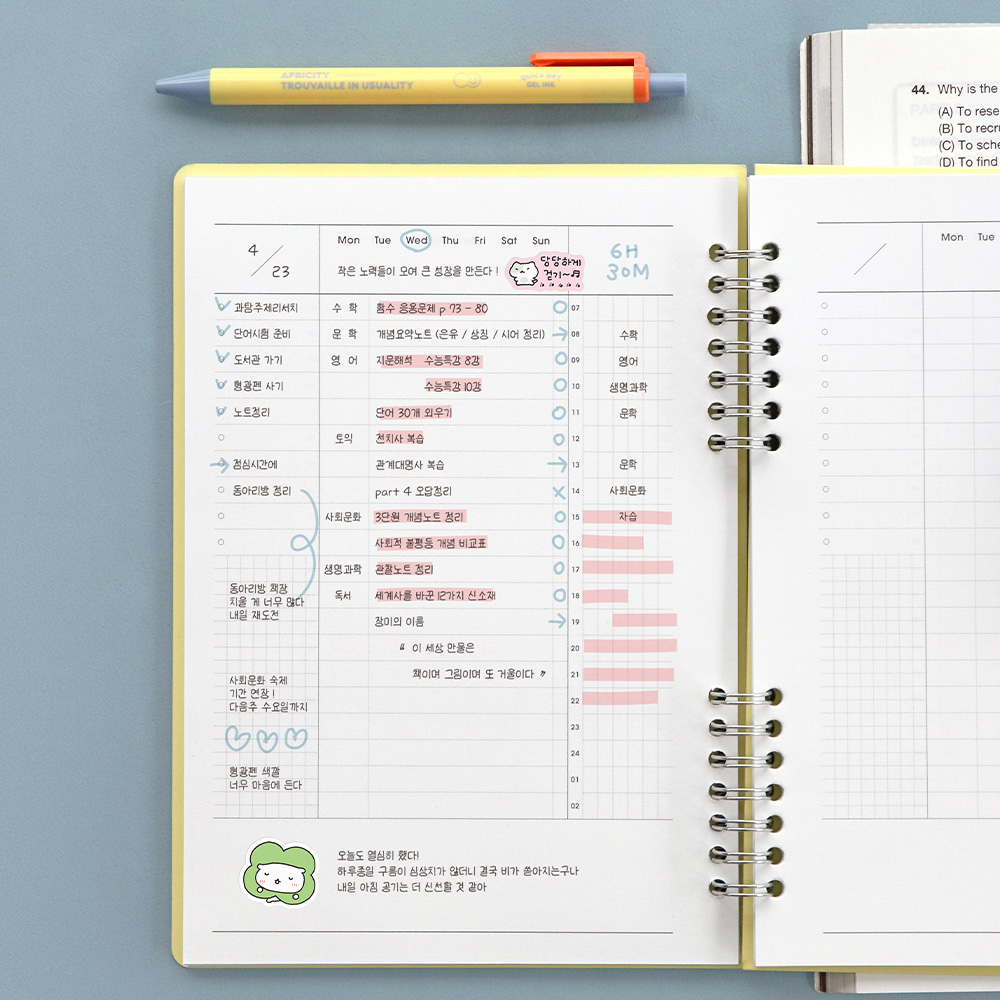 APRICITY
TROUVAILLE IN USUALITY
QUICK DRY
GEL INK
44. Why is the
(A) To rese
(B) To recru
(C) To sche
(D) To find
4 / 23
Mon Tue Wed Thu Fri Sat Sun
작은 노력들이 모여 큰 성장을 만든다!
당당하게
걷기~♬
6H
30M
Mon Tue
과탐주제리서치 수학 함수 응용문제 p 73 - 80 07
단어시험 준비 문학 개념요약노트 (은유 / 상징 / 시어 정리) → 08 수학
도서관 가기 영어 지문해석 수능특강 8강 09 영어
형광펜 사기 수능특강 10강 10 생명과학
노트정리 단어 30개 외우기 11 문학
토익 전치사 복습 12
→ 점심시간에 관계대명사 복습 → 13 문학
동아리방 정리 part 4 오답정리 x 14 사회문화
사회문화 3단원 개념노트 정리 15 자습
사회적 불평등 개념 비교표 16
생명과학 관찰노트 정리 17
독서 세계사를 바꾼 12가지 신소재 18
장미의 이름 → 19
“ 이 세상 만물은 20
책이며 그림이며 또 거울이다 ” 21
22
23
24
01
02
동아리방 책장
치울 게 너무 많다
내일 재도전
사회문화 숙제
기간 연장!
다음주 수요일까지
형광펜 색깔
너무 마음에 든다
오늘도 열심히 했다!
하루종일 구름이 심상치가 않더니 결국 비가 쏟아지는구나
내일 아침 공기는 더 신선할 것 같아